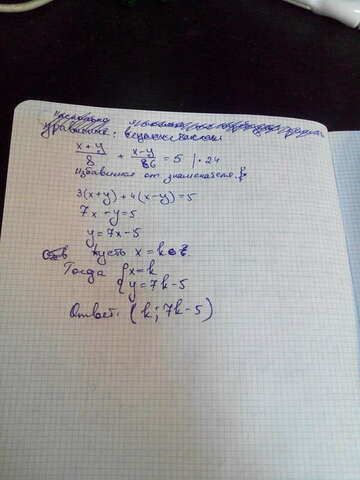 уравнение: в целых числах
x+y/8 + x-y/6 = 5 | · 24
избавимся от знаменателя.
3(x+y)+4(x-y)=5
7x-y=5
y=7x-5
пусть x=k
Тогда { x=k
{ y=7k-5
Ответ: (k; 7k-5)